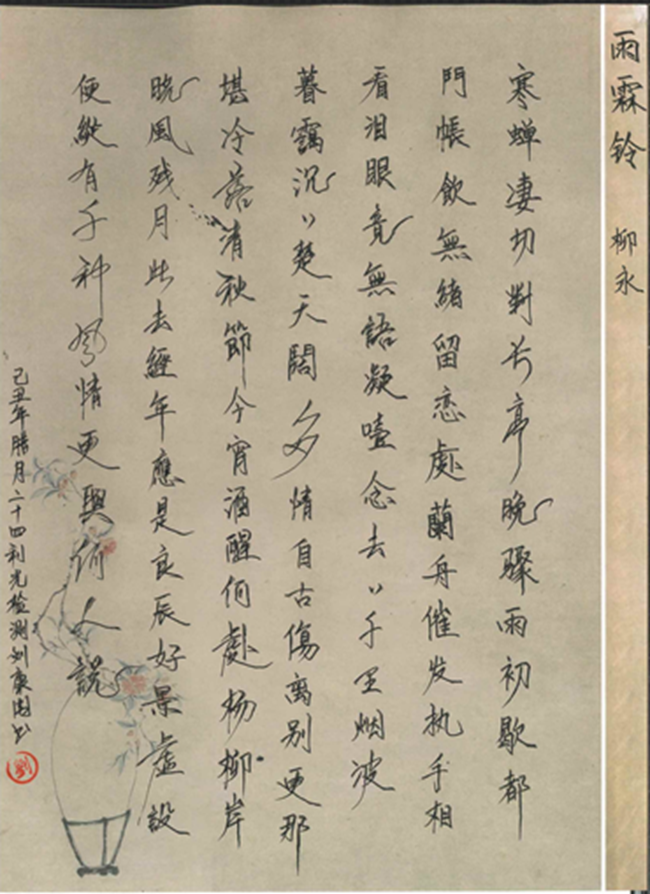 雨霖铃 柳永
寒蝉凄切對长亭晚驟雨初歇都
門帳飲無緒留恋處蘭舟催发执手相
看泪眼竟無語凝噎念去〃千里烟波
暮靄沉〃楚天闊多情自古傷离别更那
堪冷落清秋節今宵酒醒何處杨柳岸
晓風残月此去經年應是良辰好景虚設
便縱有千种風情更與何人說
己丑年腊月二十四利光检测刘康书
劉